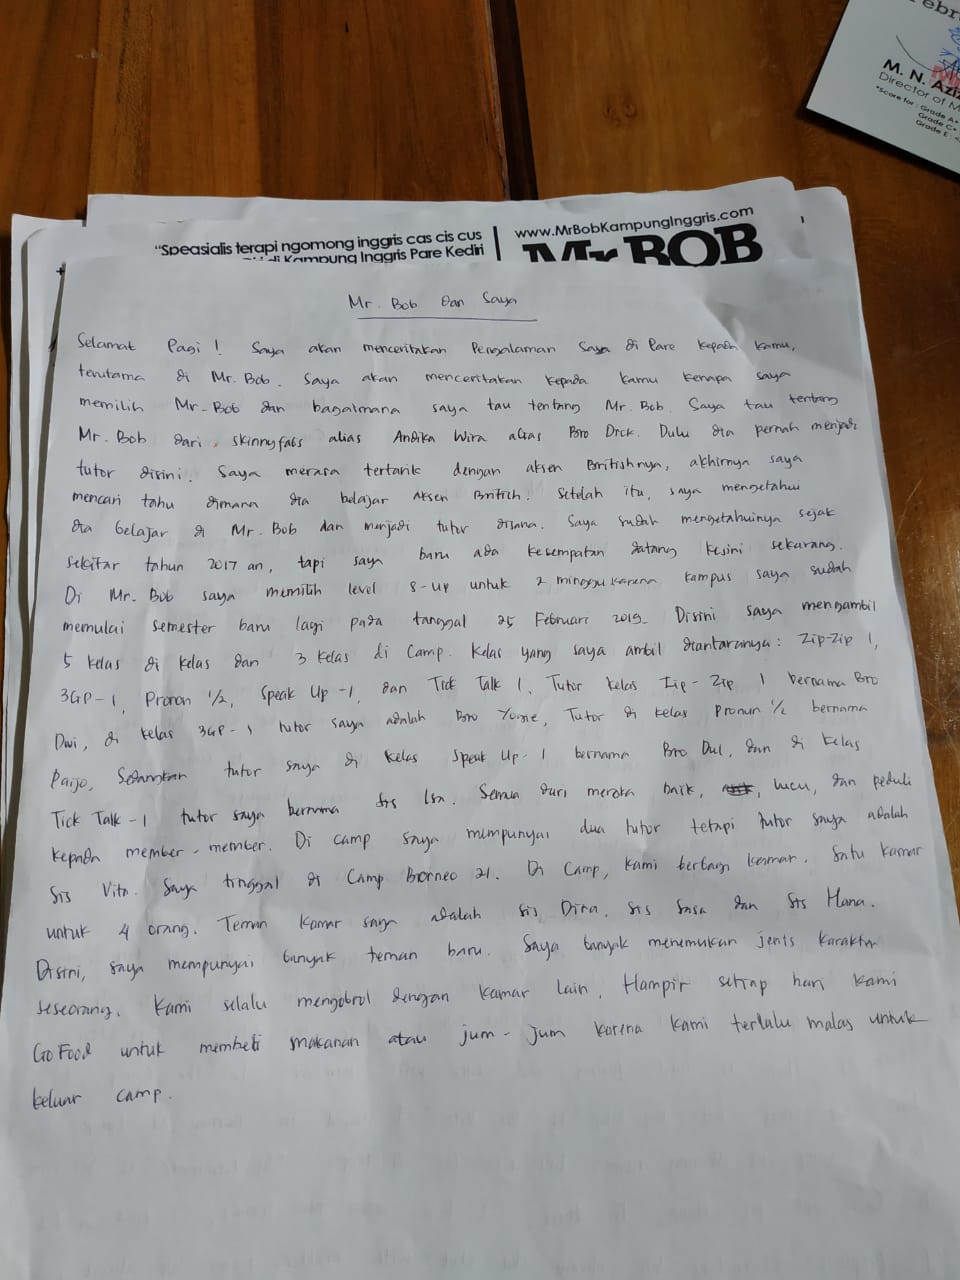 Febr
M. N. Aziz
Director of M
*Score for : Grade A+
Grade C+
Grade E
"Speasialis terapi ngomong inggris cas cis cus
di Kampung Inggris Pare Kediri
www.MrBobKampungInggris.com
Mr BOB
Mr. Bob dan Saya
Selamat Pagi ! Saya akan menceritakan Pengalaman Saya di Pare kepada kamu,
terutama di Mr. Bob. Saya akan menceritakan kepada kamu kenapa saya
memilih Mr. Bob dan bagaimana saya tau tentang Mr. Bob. Saya tau tentang
Mr. Bob dari skinnyfabs alias Andika Wira alias Bro Dick. Dulu dia pernah menjadi
tutor disini. Saya merasa tertarik dengan aksen Britishnya, akhirnya saya
mencari tahu dimana dia belajar aksen British. Setelah itu, saya mengetahui
dia belajar di Mr. Bob dan menjadi tutor disana. Saya sudah mengetahuinya sejak
sekitar tahun 2017 an, tapi saya baru ada kesempatan datang kesini sekarang.
Di Mr. Bob saya memilih level S-up untuk 2 minggu karena kampus saya sudah
memulai semester baru lagi pada tanggal 25 Februari 2019. Disini saya mengambil
5 kelas di kelas dan 3 kelas di Camp. Kelas yang saya ambil diantaranya : Zip-Zip 1,
3GP-1, Pronon 1/2, Speak Up-1, dan Tick Talk 1. Tutor kelas Zip-Zip 1 bernama Bro
Dwi, di kelas 3GP-1 tutor saya adalah Bro Yogie, Tutor di kelas Pronun 1/2 bernama
Paijo, Sedangkan tutor saya di kelas Speak Up-1 bernama Bro Dul, dan di kelas
Tick Talk-1 tutor saya bernama Sis Isn. Semua dari mereka baik, , lucu, dan peduli
kepada member-member. Di camp saya mempunyai dua tutor tetapi tutor saya adalah
Sis Vita. Saya tinggal di Camp Borneo 21. Di Camp, kami berbagi kamar. Satu kamar
untuk 4 orang. Teman kamar saya adalah Sis Dira, Sis Sasa dan Sis Hana.
Disini, saya mempunyai banyak teman baru. Saya banyak menemukan jenis karakter
seseorang. Kami selalu mengobrol dengan kamar lain. Hampir setiap hari kami
Go Food untuk membeli makanan atau jum-jum karena kami terlalu malas untuk
keluar camp.